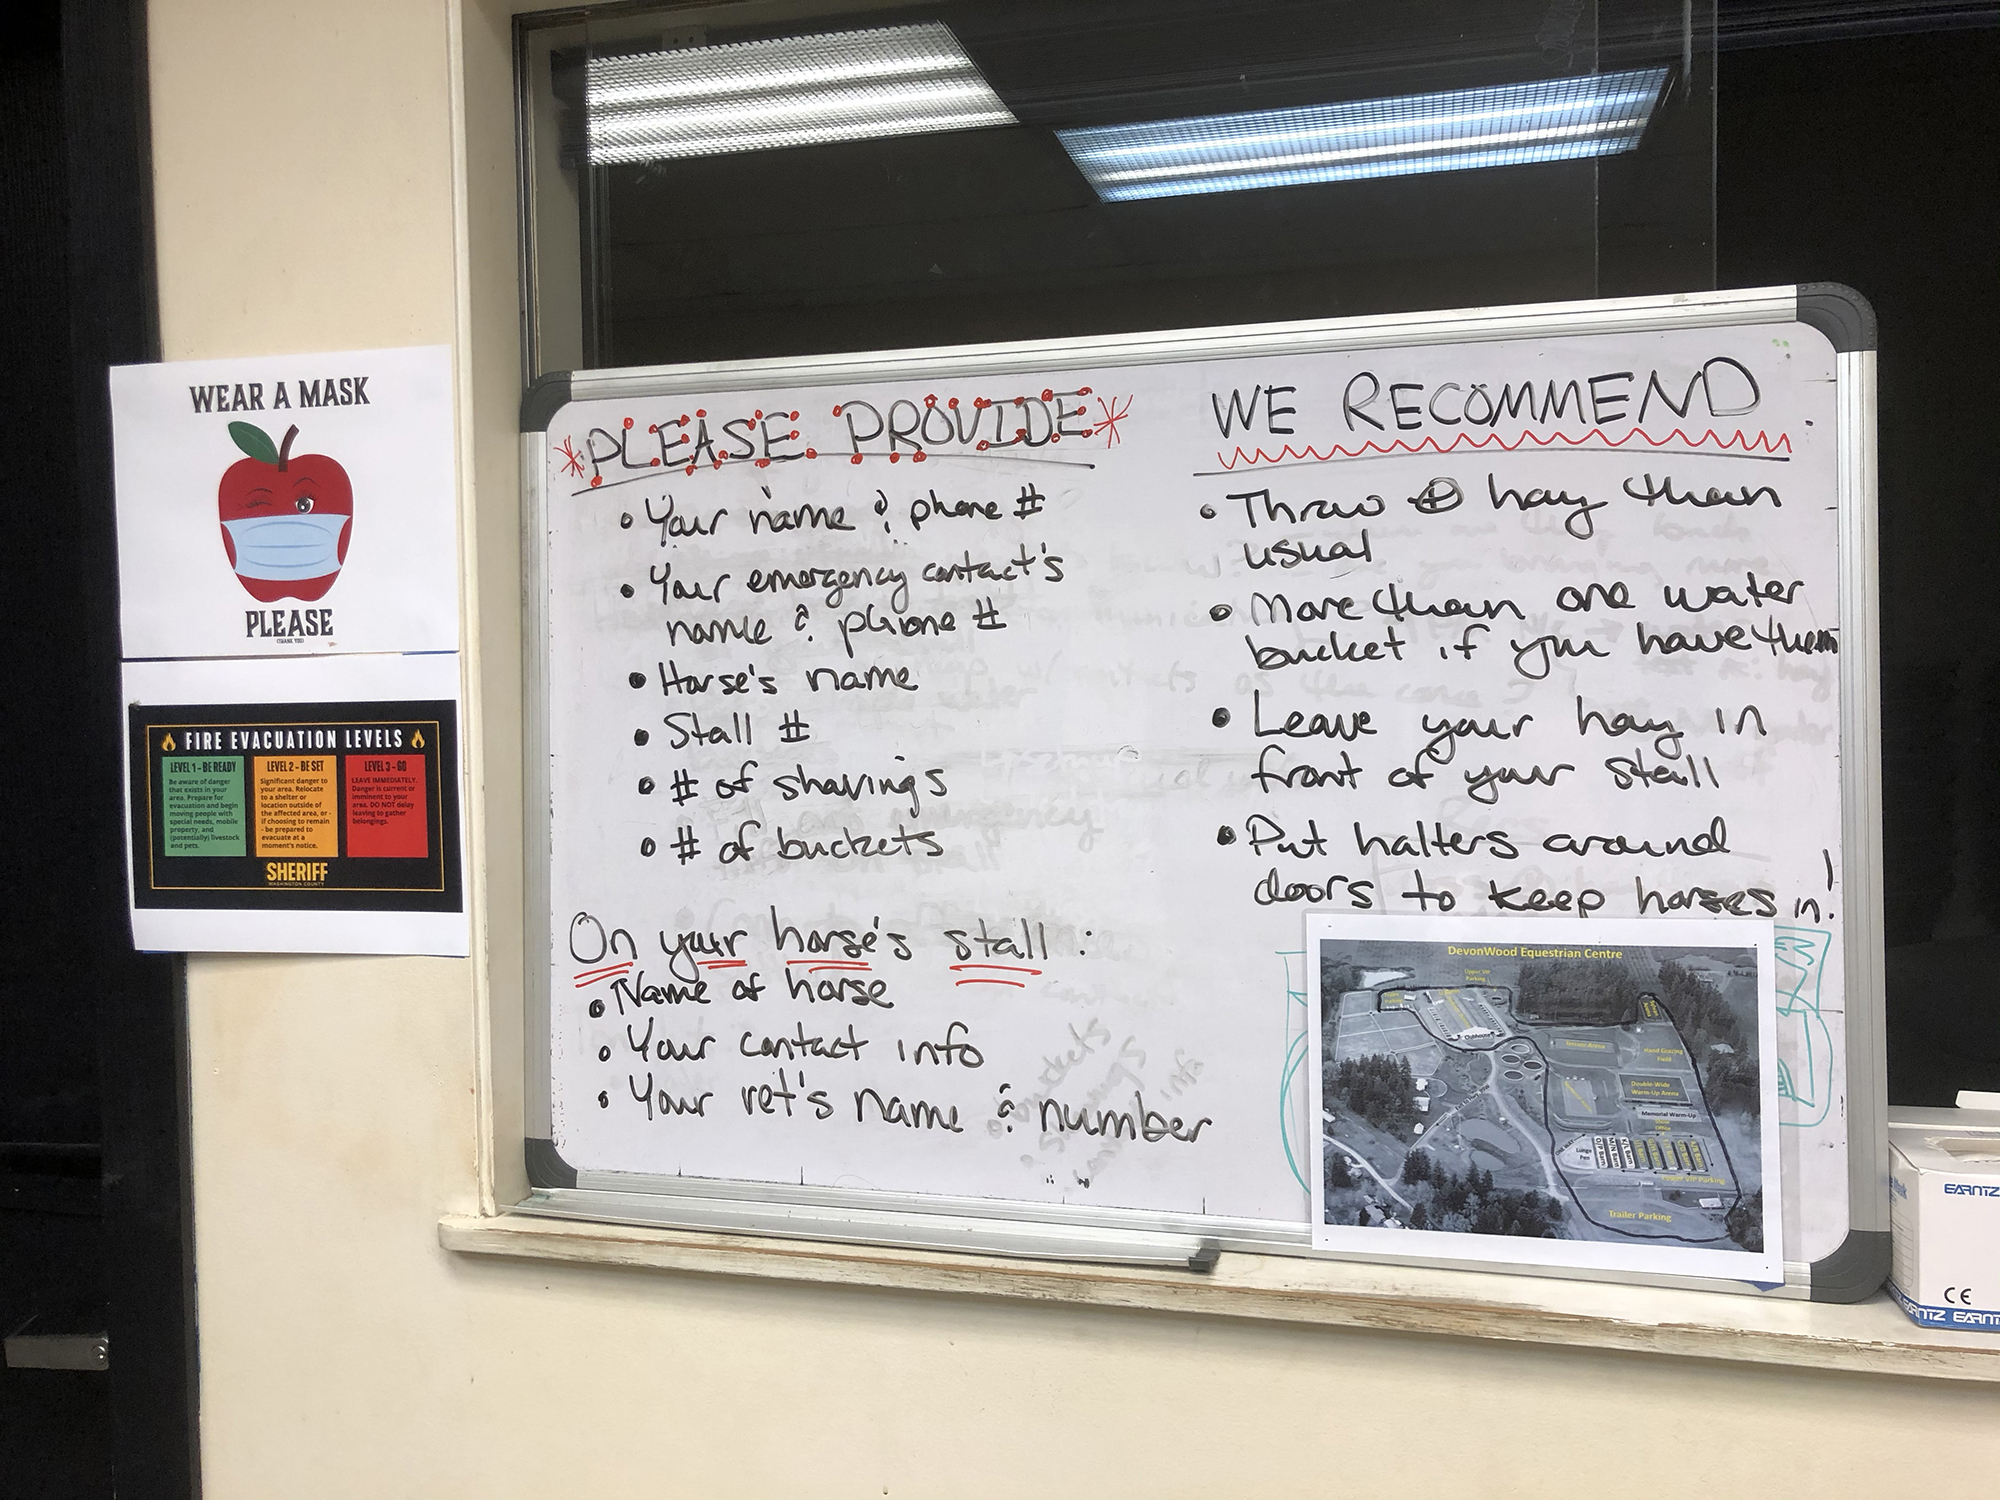 WEAR A MASK
PLEASE
(THANK YOU)
FIRE EVACUATION LEVELS
LEVEL 1 - BE READY
Be aware of danger
that exists in your
area. Prepare for
evacuation and begin
moving people with
special needs, mobile
property, and
(potentially) livestock
and pets.
LEVEL 2 - BE SET
Significant danger to
your area. Relocate
to a shelter or
location outside of
the affected area, or -
if choosing to remain
- be prepared to
evacuate at a
moment's notice.
LEVEL 3 - GO
LEAVE IMMEDIATELY.
Danger is current or
imminent to your
area. DO NOT delay
leaving to gather
belongings.
SHERIFF
WASHINGTON COUNTY
*PLEASE PROVIDE*
• Your name & phone #
• Your emergency contact's
name & phone #
• Horse's name
• Stall #
• # of shavings
• # of buckets
On your horse's stall:
• Name of horse
• Your contact info
• Your vet's name & number
WE RECOMMEND
• Throw + hay than
usual
• More than one water
bucket if you have them
• Leave your hay in
front of your stall
• Put halters around
doors to keep horses in!
DevonWood Equestrian Centre
Upper VIP
Parking
Clubhouse
Hand Grazing
Field
Double-Wide
Warm-Up Arena
Memorial Warm-Up
Lunge
Pen
Lower VIP Parking
Trailer Parking
EARNTZ
CE
EARNTZ